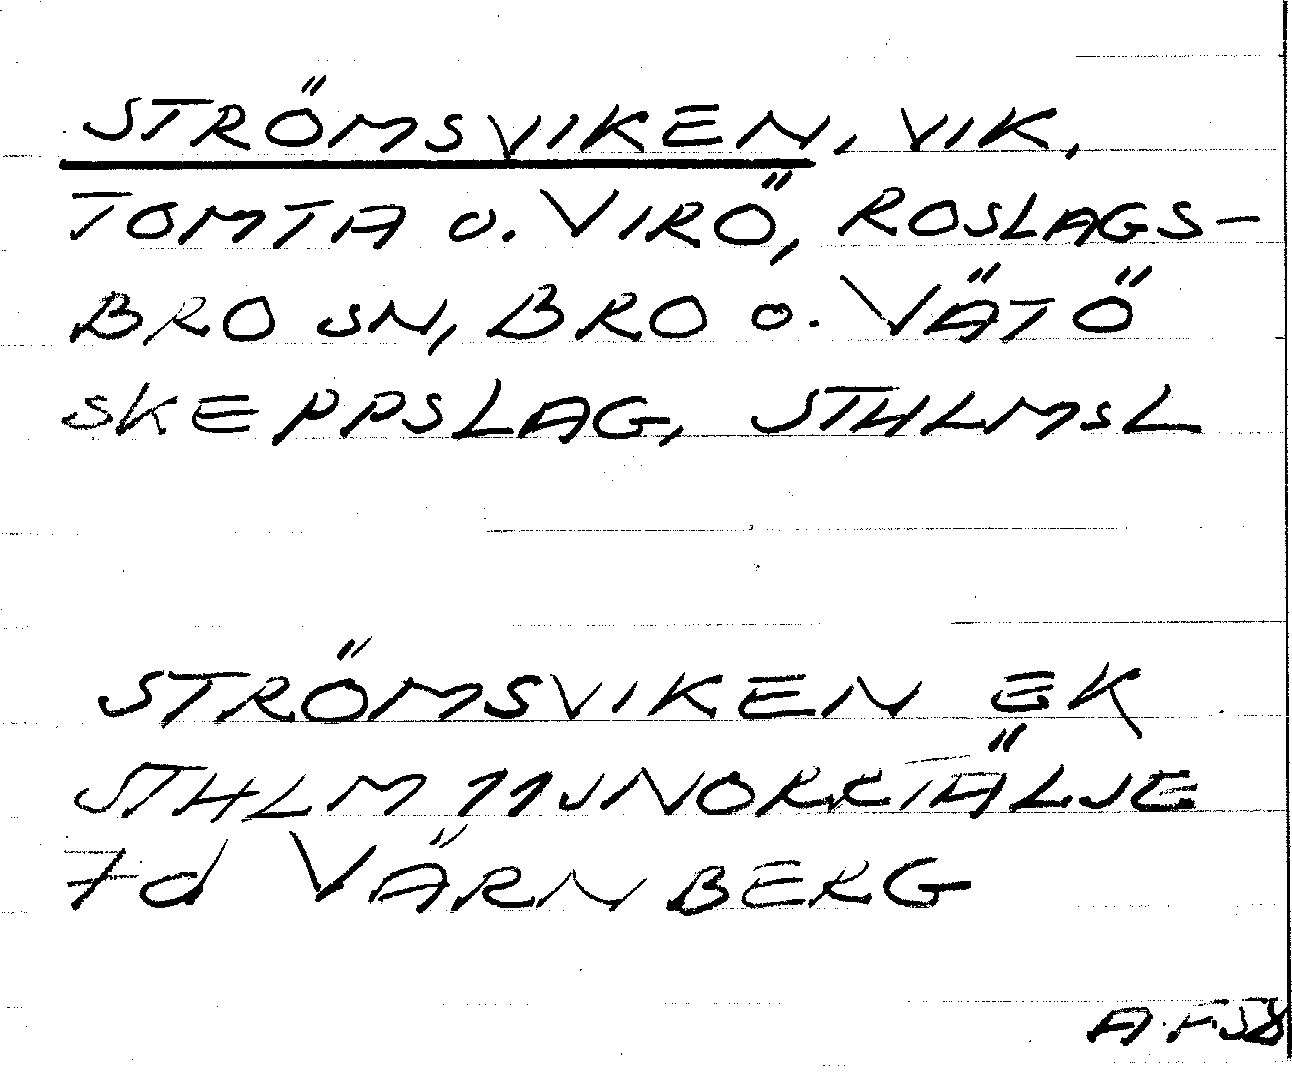 STRÖMSVIKEN, VIK,
TOMTA o. VIRÖ, ROSLAGS-
BRO SN, BRO o. VÄTÖ
SKEPPSLAG, STHLMSL
STRÖMSVIKEN EK
STHLM 11J NORRTÄLJE
7d VÄRNBERG
A.F 58